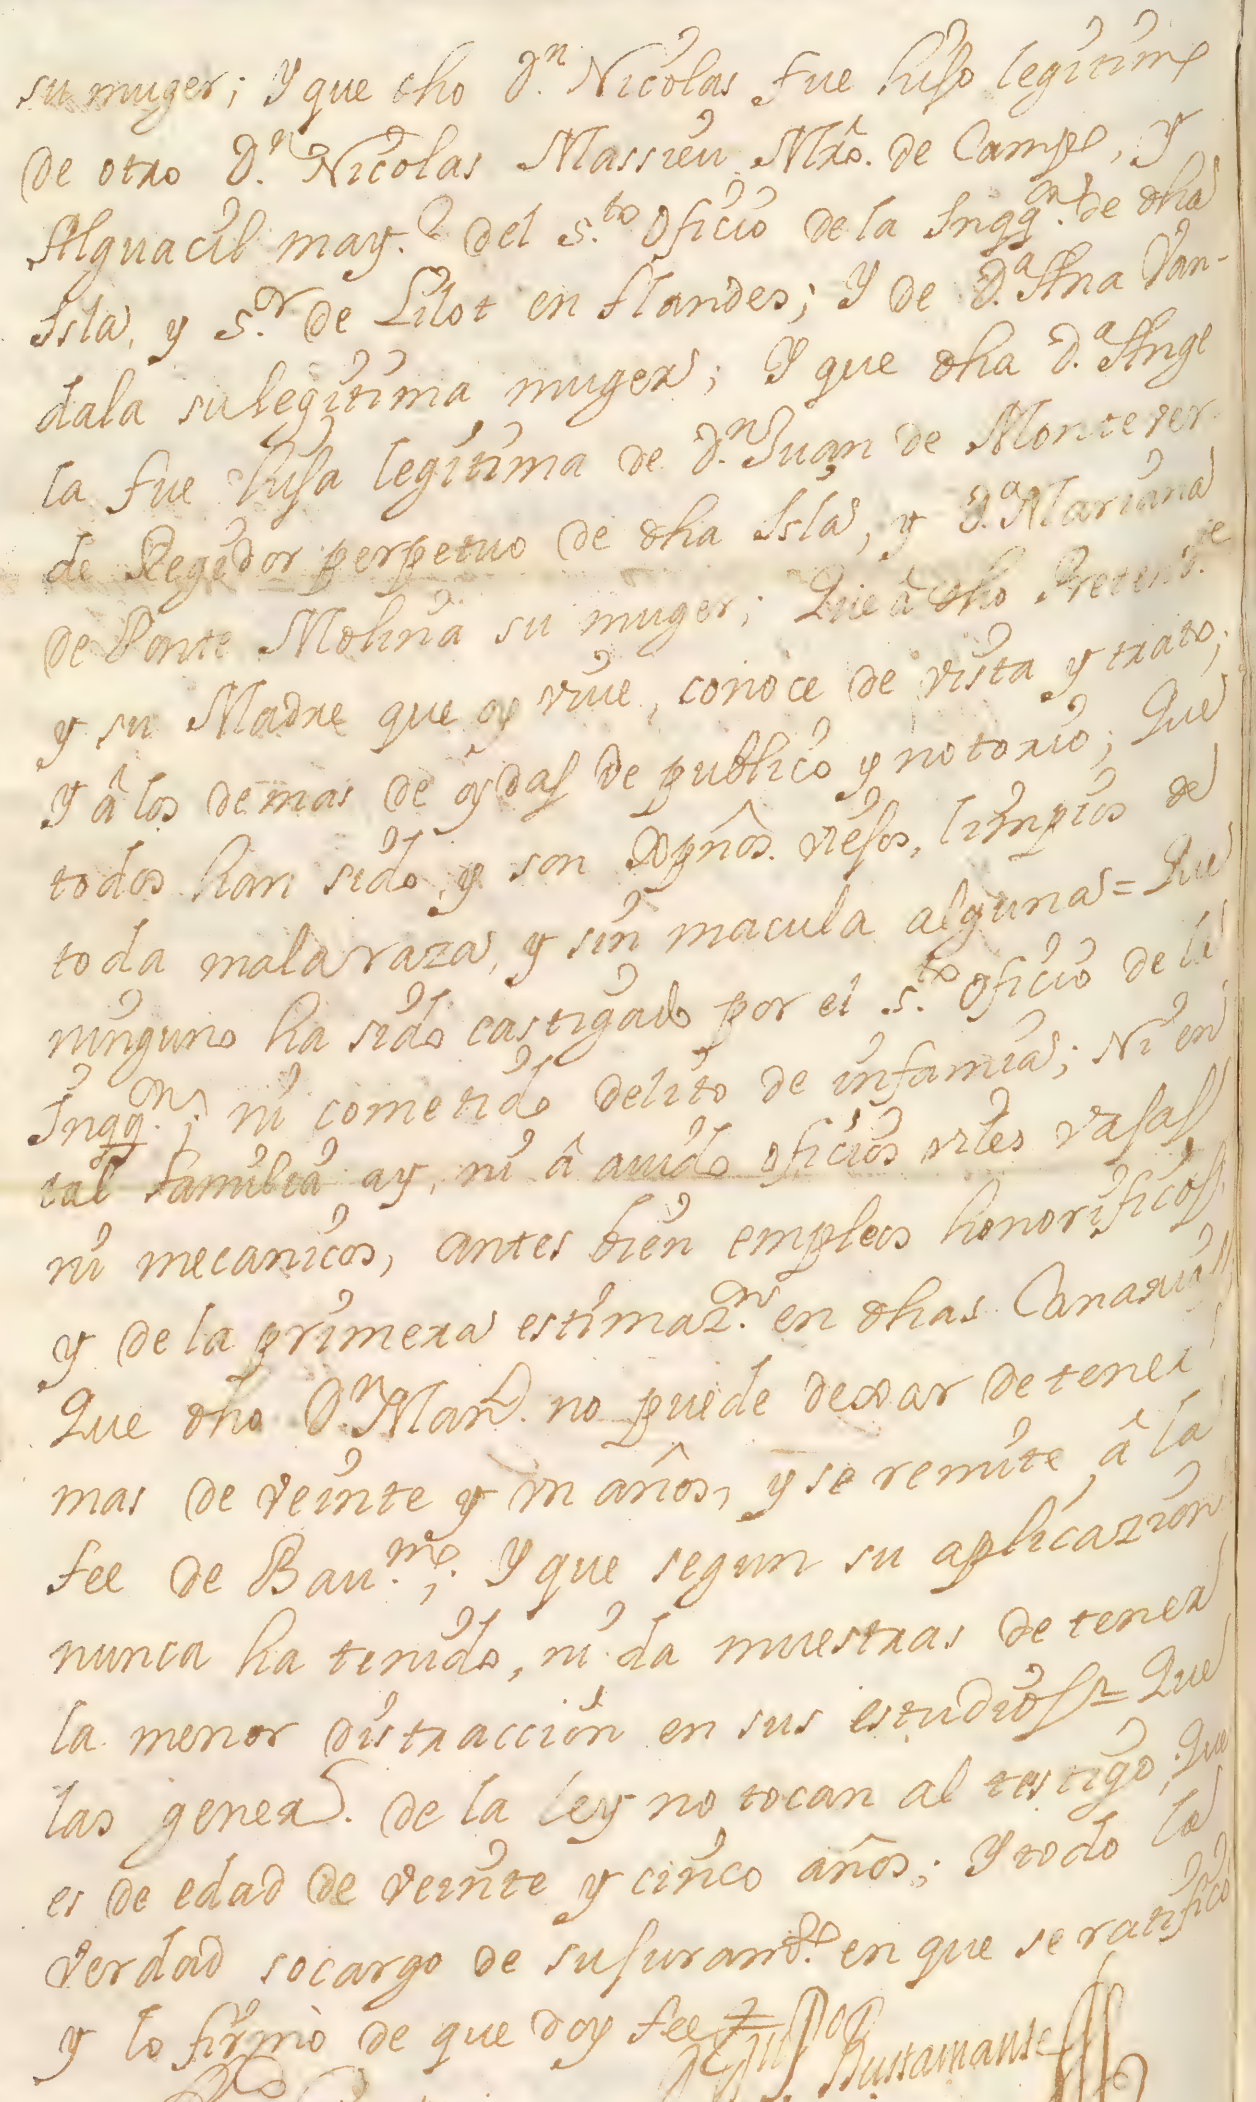 su muger; Y que dho D.n Nicolas fue hijo legitimo
de otro D.n Nicolas Massieu Mro. de Campo, y
Alguacil may.r del S.to Oficio de la Inqq.on de dha
Isla, y S.r de Lilot en flandes; Y de D.a Ana Van-
dala su legitima muger; Y que dha D.a Ange
la fue hija legitima de D.n Juan de Montever
de Regidor perpetuo de dha Isla, y D.a Mariana
de Ponte Molina su muger; Que â dho Pretend.te
y su Madre que oy vive, conoce de vista y trato;
Y â los demas de oydas de publico y notorio; Que
todos han sido, y son Xpnôs. viejos, limpios de
toda mala raza, y sin macula alguna = Que
ninguno ha sido castigado por el S.to Oficio de la
Inqq.n; ni cometido delito de infamia; Ni en
tal familia ay, ni â auido oficios viles vajas
ni mecanicos, antes bien empleos honorificos,
y de la primera estimaz.n en dhas Canarias
Que dho D.n Man.l no puede dexar de tener
mas de veinte y vn años, y se remite â la
fee de Bau.mo; Y que segun su aplicazion
nunca ha tenido, ni da muestras de tener
la menor distracción en sus estudios = Que
las genera.s de la ley no tocan al testigo, Que
es de edad de veinte y cinco años; Y todo la
verdad socargo de su juram.to en que se ratificò
y lo firmò de que doy fee =
Bustamante